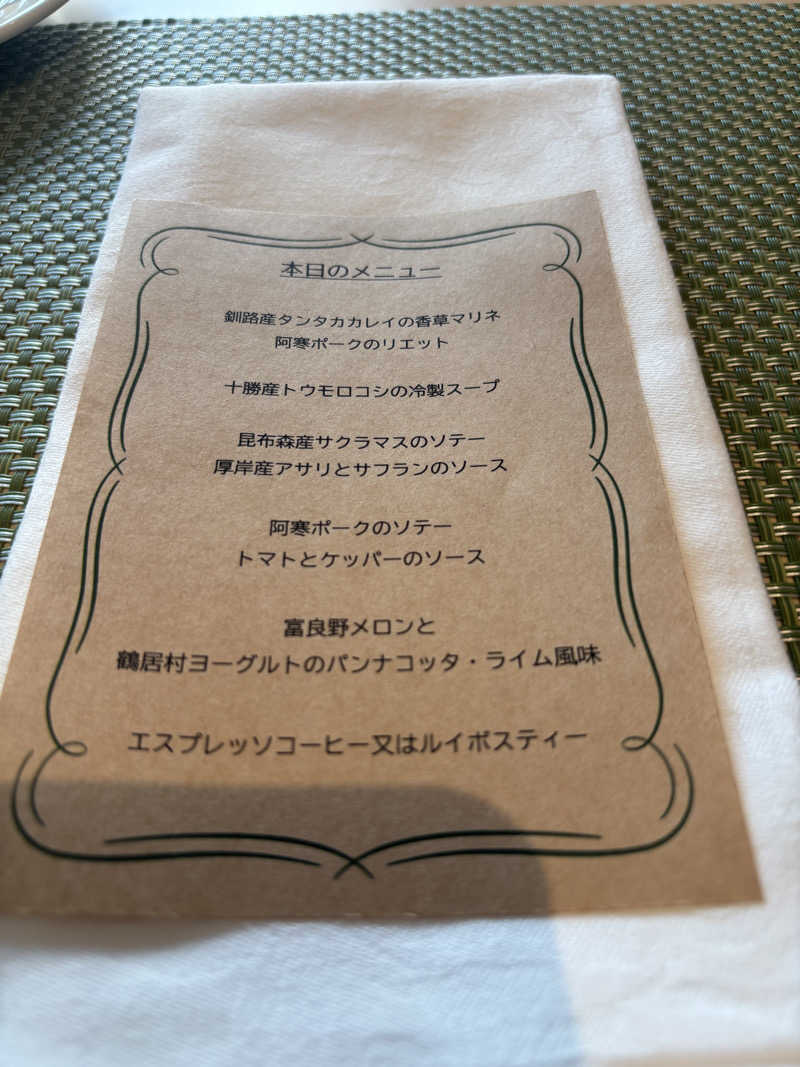 本日のメニュー
釧路産タンタカカレイの香草マリネ
阿寒ポークのリエット
十勝産トウモロコシの冷製スープ
昆布森産サクラマスのソテー
厚岸産アサリとサフランのソース
阿寒ポークのソテー
トマトとケッパーのソース
富良野メロンと
鶴居村ヨーグルトのパンナコッタ・ライム風味
エスプレッソコーヒー又はルイボスティー